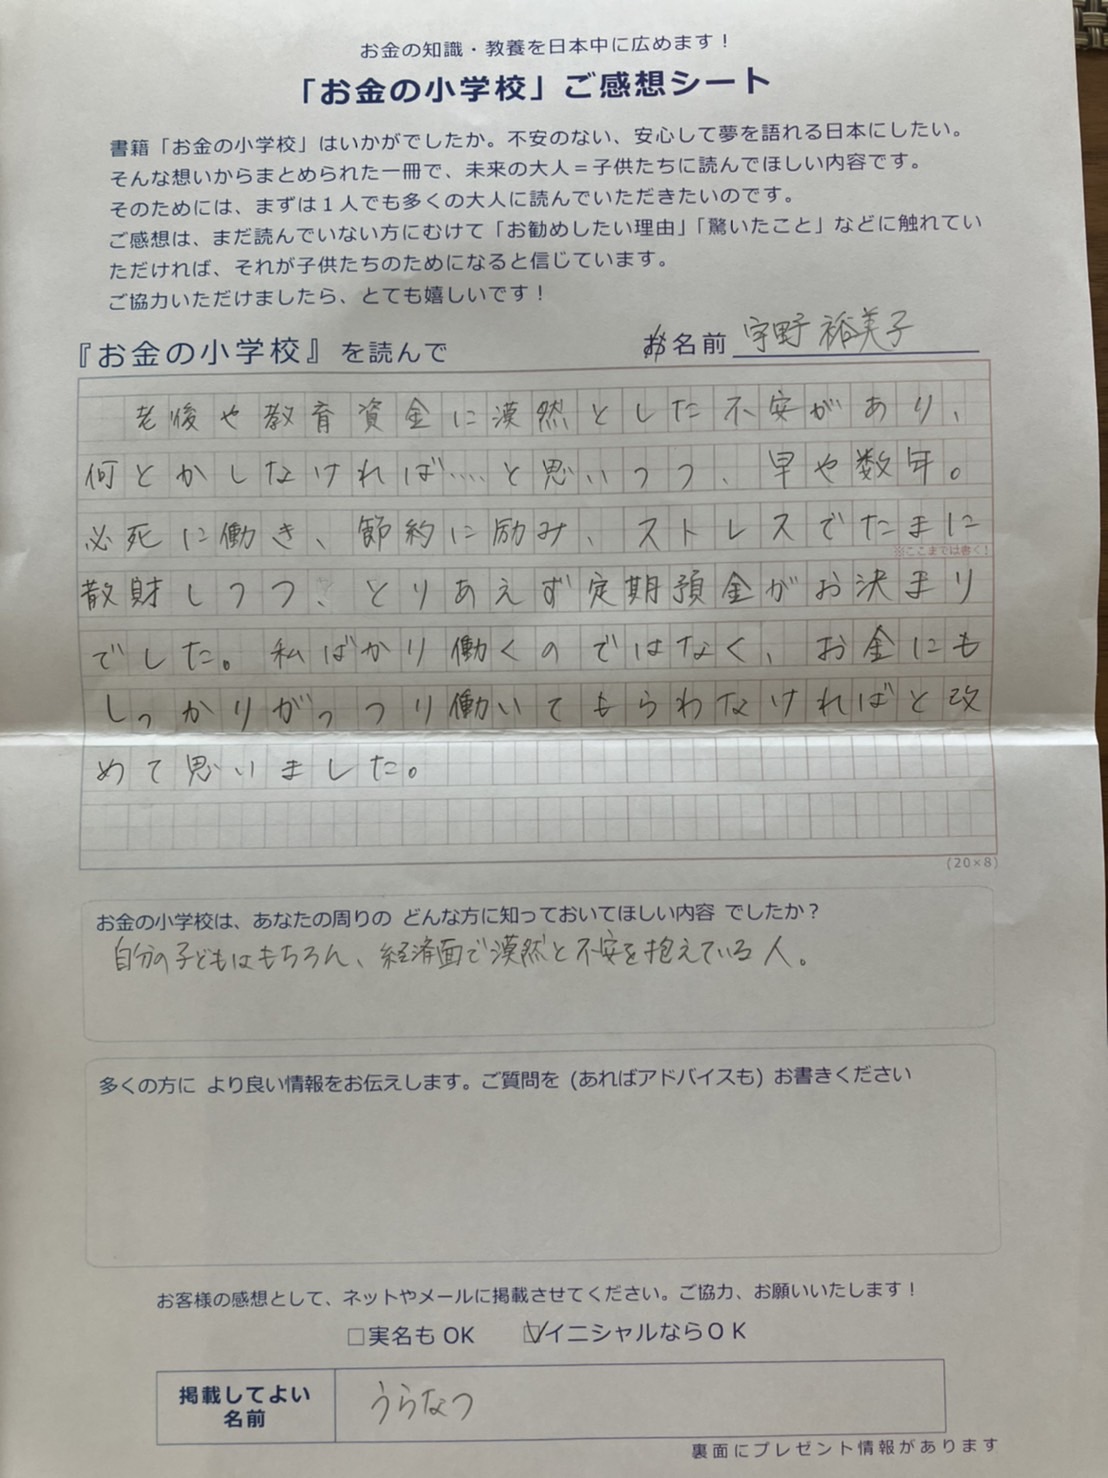 お金の知識・教養を日本中に広めます！
「お金の小学校」ご感想シート
書籍「お金の小学校」はいかがでしたか。不安のない、安心して夢を語れる日本にしたい。
そんな想いからまとめられた一冊で、未来の大人＝子供たちに読んでほしい内容です。
そのためには、まずは１人でも多くの大人に読んでいただきたいのです。
ご感想は、まだ読んでいない方にむけて「お勧めしたい理由」「驚いたこと」などに触れてい
ただければ、それが子供たちのためになると信じています。
ご協力いただけましたら、とても嬉しいです！
『お金の小学校』を読んで
お名前 宇野 裕美子
老後や教育資金に漠然とした不安があり、
何とかしなければ…と思いつつ、早や数年。
必死に働き、節約に励み、ストレスでたまに
※ここまでは書く！
散財しつつ、とりあえず定期預金がお決まり
でした。私ばかり働くのではなく、お金にも
しっかりがっつり働いてもらわなければと改
めて思いました。
(20×8)
お金の小学校は、あなたの周りの どんな方に知っておいてほしい内容 でしたか？
自分の子どもはもちろん、経済面で漠然と不安を抱えている人。
多くの方に より良い情報をお伝えします。ご質問を (あればアドバイスも) お書きください
お客様の感想として、ネットやメールに掲載させてください。ご協力、お願いいたします！
□実名も OK ☑イニシャルならＯＫ
掲載してよい
名前
うらなつ
裏面にプレゼント情報があります